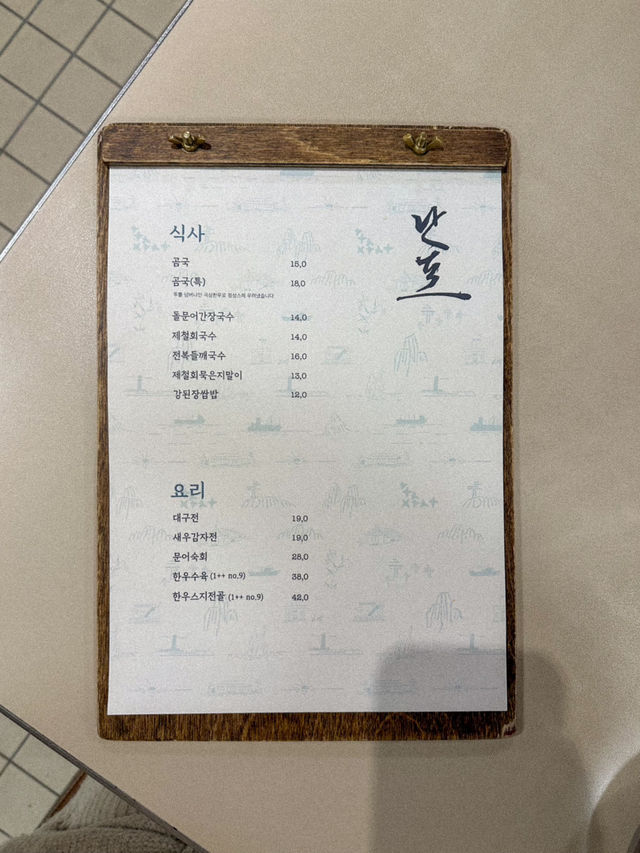 식사
곰국 15,0
곰국(특) 18,0
돌문어간장국수 14,0
제철회국수 14,0
전복들깨국수 16,0
제철회묵은지말이 13,0
강된장쌈밥 12,0
요리
대구전 19,0
새우감자전 19,0
문어숙회 28,0
한우수육 (1++ no.9) 38,0
한우스지전골 (1++ no.9) 42,0